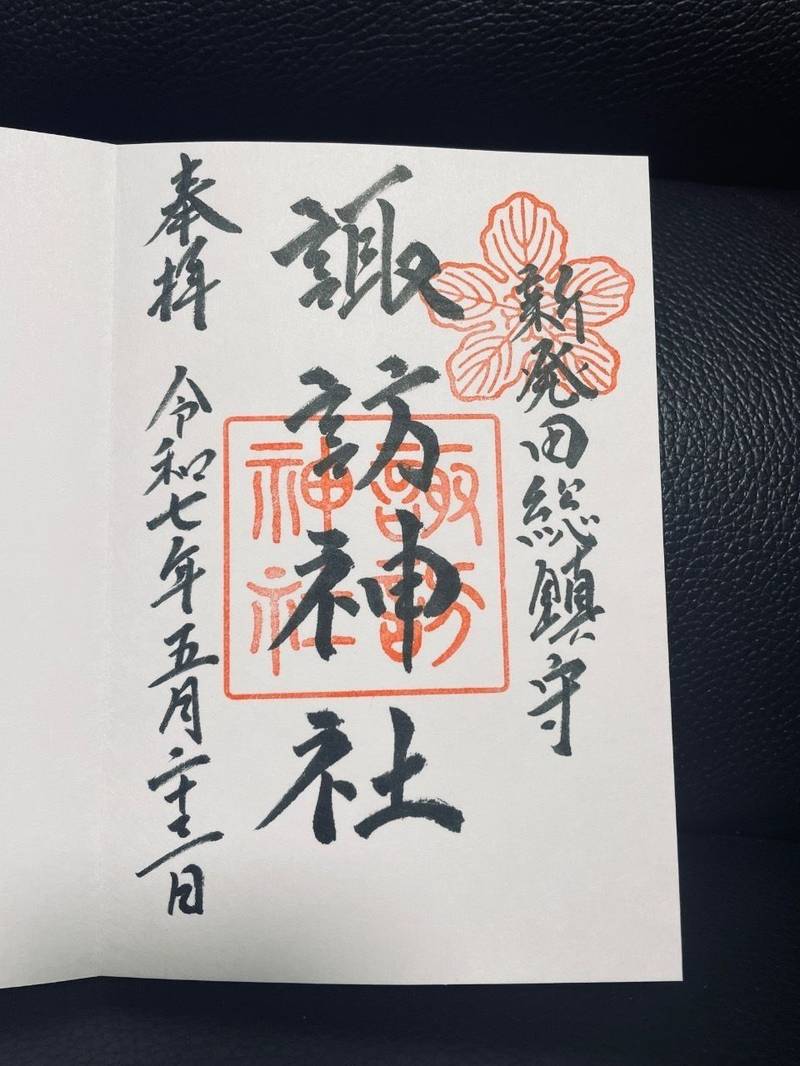 新発田総鎮守
諏訪神社
奉拝 令和七年五月二十三日
諏訪
神社